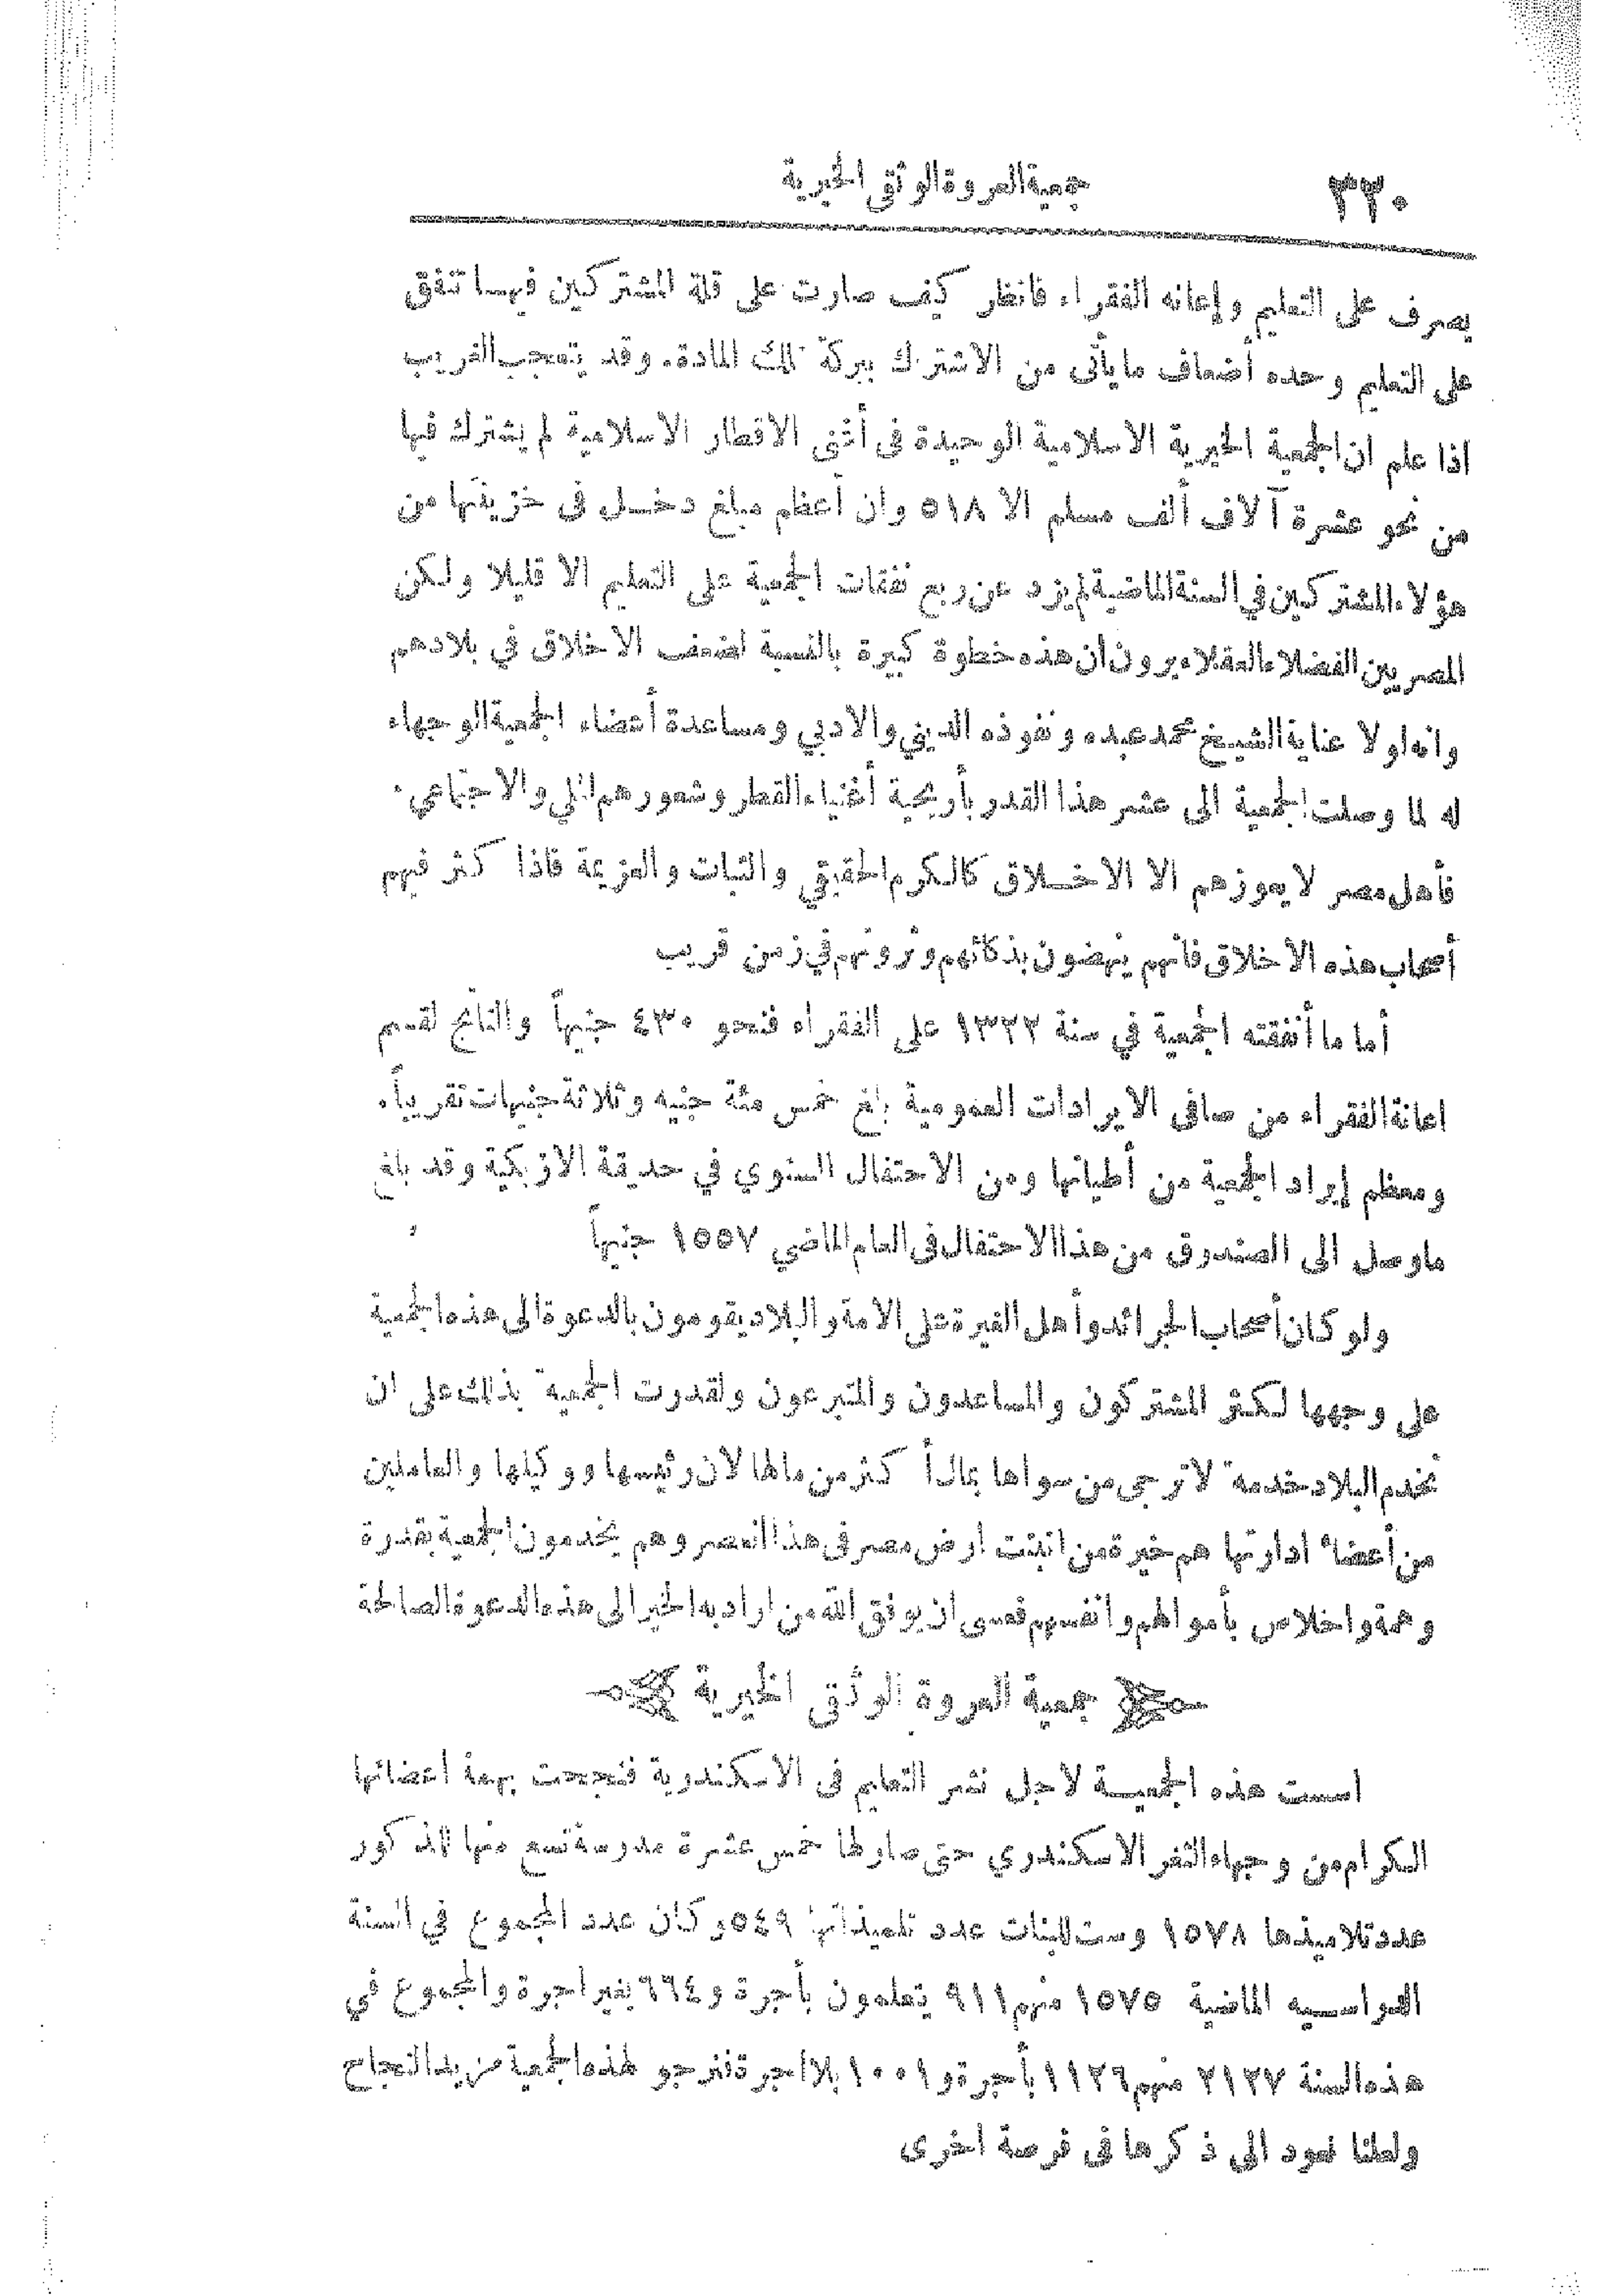 ٣٣٠
جمعية العروة الوثقى الخيرية
يصرف على التعليم وإعانه الفقراء فانظر كيف صارت على قلة المشتركين فيها تنفق
على التعليم وحده أضعاف ما يأتى من الاشتراك ببركة تلك المادة. وقد يتعجب الغريب
اذا علم ان الجمعية الخيرية الاسلامية الوحيدة فى أغنى الاقطار الاسلامية لم يشترك فيها
من نحو عشرة آلاف ألف مسلم الا ٥١٨ وان أعظم مبلغ دخل فى خزينتها من
هؤلاء المشتركين في السنة الماضية لم يزد عن ربع نفقات الجمعية على التعليم الا قليلا ولكن
المصريين الفضلاء العقلاء يرون أن هذه خطوة كبيرة بالنسبة لضعف الاخلاق في بلادهم
وانه لولا عناية الشيخ محمد عبده ونفوذه الديني والادبي ومساعدة أعضاء الجمعية الوجهاء
له لما وصلت الجمعية الى عشر هذا القدر بأريحية أغنياء القطر وشعورهم الملي والاجتماعي.
فأهل مصر لا يعوزهم الا الاخلاق كالكرم الحقيقي والثبات والعزيمة فاذا كثر فيهم
أصحاب هذه الاخلاق فانهم ينهضون بذكائهم وثروتهم في زمن قريب
أما ما أنفقته الجمعية في سنة ١٣٢٢ على الفقراء فنحو ٤٣٠ جنيهاً والناتج لقسم
اعانة الفقراء من صافى الايرادات العمومية بلغ خمس مئة جنيه وثلاثة جنيهات تقريباً.
ومعظم إيراد الجمعية من أطيانها ومن الاحتفال السنوي في حديقة الازبكية وقد بلغ
ما وصل الى الصندوق من هذا الاحتفال فى العام الماضي ١٥٥٧ جنيهاً
ولو كان أصحاب الجرائد وأهل الغيرة على الامة والبلاد يقومون بالدعوة الى هذه الجمعية
على وجهها لكثر المشتركون والمساعدون والمتبرعون ولقدرت الجمعية بذلك على ان
تخدم البلاد خدمة لا ترجى من سواها بمال أكثر من مالها لان رئيسها ووكيلها والعاملين
من أعضاء ادارتها هم خيرة من انبتت ارض مصر فى هذا العصر وهم يخدمون الجمعية بقدرة
وهمة واخلاص بأموالهم وانفسهم فعسى ان يوفق الله من اراد به الخير الى هذه الدعوة الصالحة
جمعية العروة الوثقى الخيرية
اسست هذه الجمعية لاجل نشر التعليم فى الاسكندرية فنجحت بهمة اعضائها
الكرام من وجهاء الثغر الاسكندري حتى صار لها خمس عشرة مدرسة تسع منها للذكور
عدد تلاميذها ١٥٧٨ وست للبنات عدد تلميذاتها ٥٤٩ وكان عدد المجموع في السنة
الدراسيه الماضية ١٥٧٥ منهم ٩١١ يتعلمون بأجرة و ٦٦٤ بغير اجرة والمجموع في
هذه السنة ٢١٢٧ منهم ١١٢٦ بأجرة و ١٠٠١ بلا اجرة فنرجو لهذه الجمعية مزيد النجاح
ولعلنا نعود الى ذكرها فى فرصة اخرى